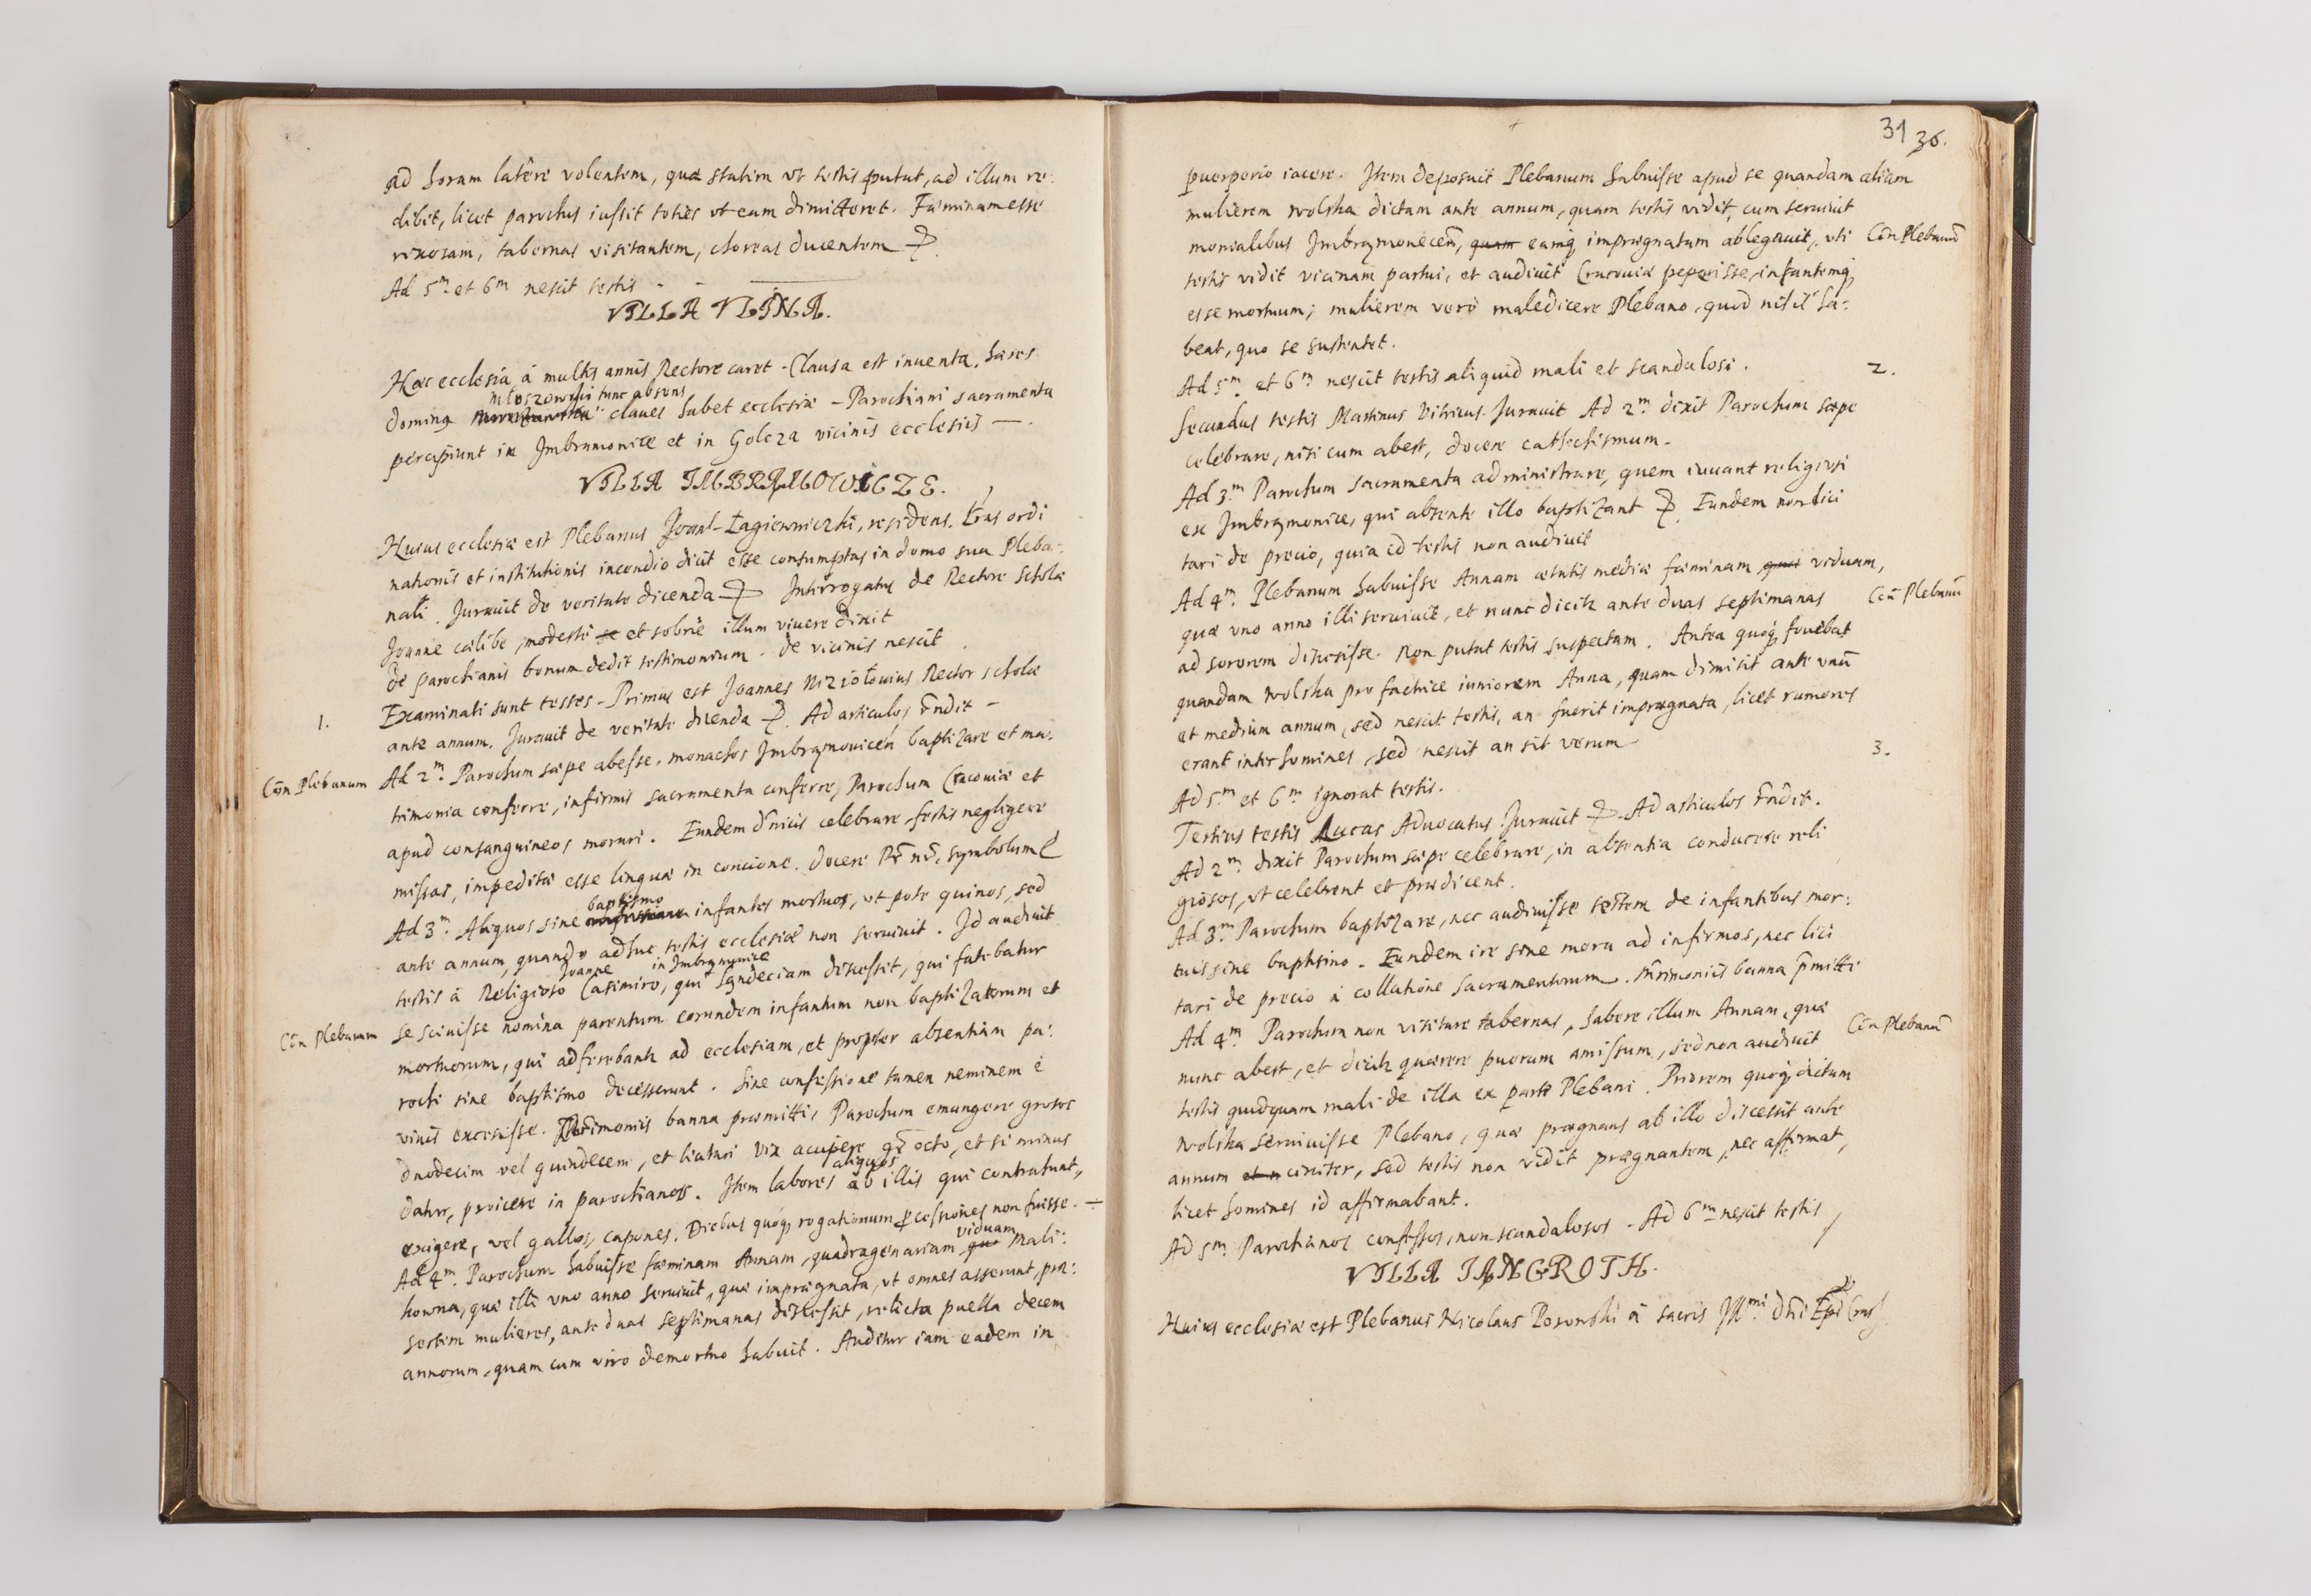 ad horam latere volentem, quæ statim ut testis putat, ad illum re:
dibit, licet parochus iussit toties ut eam dimitteret. Fæminam esse
rixosam, tabernas visitantem, choreas ducentem
Ad 5m et 6m nescit testis
VILLA VLINA.
Hæc ecclesia à multis annis Rectore caret - Clausa est inuenta, hæres
mloszowski tunc absens
claues habet ecclesiæ - Parochiani sacramenta
percipiunt in Imbramonice et in Golcza vicinis ecclesiis -.
VILLA IMBRAMOWICZE.
Huius ecclesiæ est Plebanus Joan̄ Łagiewniczki, residens. Lr̄as ordi
nationis et institutionis incendio dicit esse consumptas in domo sua Pleba:
nali. Jurauit de veritate dicenda Interrogatus de Rectore Scholæ
Joanne cælibe, modeste se et sobrie illum viuere dixit
de parochianis bonum dedit testimonium. de vicinis nescit.
1. Examinati sunt testes - Primus est Joannes Niziołouius Rector scholæ
ante annum. Jurauit de veritate dicenda Ad articulos rn̄dit -
Con̄ Plebanum Ad 2m. Parochum sæpe abesse, monachos Imbramouicen̄ baptizare et ma:
trimonia conferre, infirmis sacramenta conferre, Parochum Cracouiæ et
apud consanguineos morari. Eundem dn̄icis celebrare festis negligere
missas, impeditæ esse linguæ in concione. docere Pr̄ nr̄, symbolum
baptismo
Ad 3m. Aliquos sine confessione infantes mortuos, ut pote quinos, sed
ante annum, quando adhuc testis ecclesiæ non seruiuit. Id audiuit
Joanne in Imbramonice
testis à Religioso Casimiro, qui Sandeciam discessit, qui fatebatur
Con̄ Plebanum se sciuisse nomina parentum eorundem infantum non baptizatorum et
mortuorum, qui adferebantr ad ecclesiam, et propter absentiam pa:
rochi sine baptismo decesserunt. Sine confessione tamen neminem è
viuis excessisse. Matrimoniis banna præmitti, Parochum emungere grosos
duodecim vel quindecem, et licitari Vix accipere gr̄ octo, et si minus
aliquos
datur, proicere in parochianos. Item labores ab illis qui contrahunt,
exigere, vel gallos, capones. Diebus quoq rogationum processiones non fuisse. -
viduam
Ad 4m. Parochum habuisse fæminam Annam, quadragenariam quæ Mali:
howna, quæ illi uno anno seruiuit, quæ imprægnata, ut omnes asserunt, præ:
sertim mulieres, ante duas septimanas discessit, relicta puella decem
annorum, quam cum viro demortuo habuit. Auditur iam eadem in
31 36.
puerperio iacere. Item deposuit Plebanum habuisse apud se quandam aliam
mulierem Wolska dictam ante annum, quam testis vidit, cum seruiuit
monialibus Imbramonicen̄, quam eamq imprægnatam ablegauit, vti Con̄ Plebanū
testis vidit vicinam partui, et audiuit Cracouiæ peperisse, infantemq
esse mortuum; mulierem verò maledicere Plebano, quod nihil ha:
beat, quo se sustentet.
Ad 5m et 6m nescit testis aliquid mali et scandalosi.
2. Secundus testis Martinus Vitricus. Jurauit Ad 2m dixit Parochum sæpe
celebrare, nisi cum abest, docere cathechismum -
Ad 3m Parochum sacramenta administrare, quem iuuant religiosi
ex Imbramonice, qui absente illo baptizant Eundem non lici
tari de precio, quia id testis non audiuit
Ad 4m. Plebanum habuisse Annam ætatis mediæ fæminam quæ viduam,
quæ vno anno illi seruiuit, et nunc dicitr ante duas septimanas Con̄ Plebanū
ad sororem discesisse. Non putat testis suspectam. Antea quoq fouebat
quandam Wolska pro factrice iuniorem Anna, quam dimisit ante vnū
et medium annum, sed nescit testis, an fuerit imprægnata, licet rumores
erant inter homines, sed nescit an sit verum
Ad 5m et 6m ignorat testis.
3. Tertius testis Lucas Aduocatus. Jurauit Ad articulos rn̄dit.
Ad 2m dixit Parochum sæpe celebrare, in absentia conducere reli
giosos, ut celebrent et prædicent.
Ad 3m Parochum baptizare, nec audiuisse testem de infantibus mor:
tuis sine baptismo. Eundem ire sine mora ad infirmos, nec lici
tari de precio à collatione sacramentorum. Mr̄imoniis banna p̄mitti
Ad 4m Parochum non visitare tabernas, habere illum Annam, quæ Con̄ Plebanū
nunc abest, et dicitr quærere puerum amissum, sed non audiuit
testis quidquam mali de illa ex parte Plebani. Priorem quoq dictam
Wolska seruiuisse Plebano, quæ prægnans ab illo discessit ante
annum circiter, sed testis non vidit prægnantem, nec affirmat,
licet homines id affirmabant.
Ad 5m Parochianos confessos, non scandalosos - Ad 6m nescit testis
VILLA IANGROTH.
Huius ecclesiæ est Plebanus Nicolaus à sacris Illmi dn̄i Ep̄i